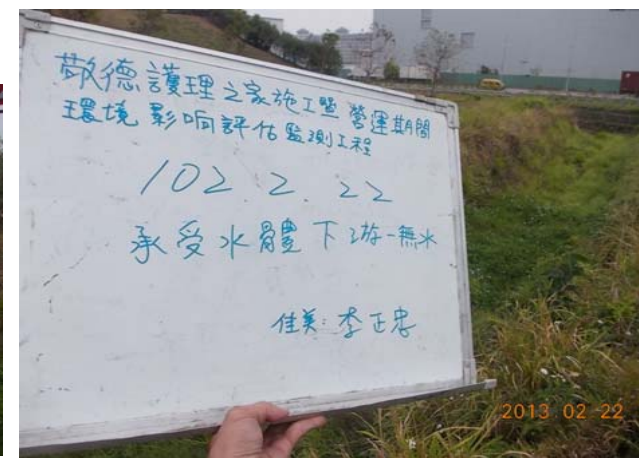 敬德護理之家施工暨營運期間
環境影响評估監測工程
102 2. 22
承受水體下游-無水
佳美: 李正忠
2013 02 22